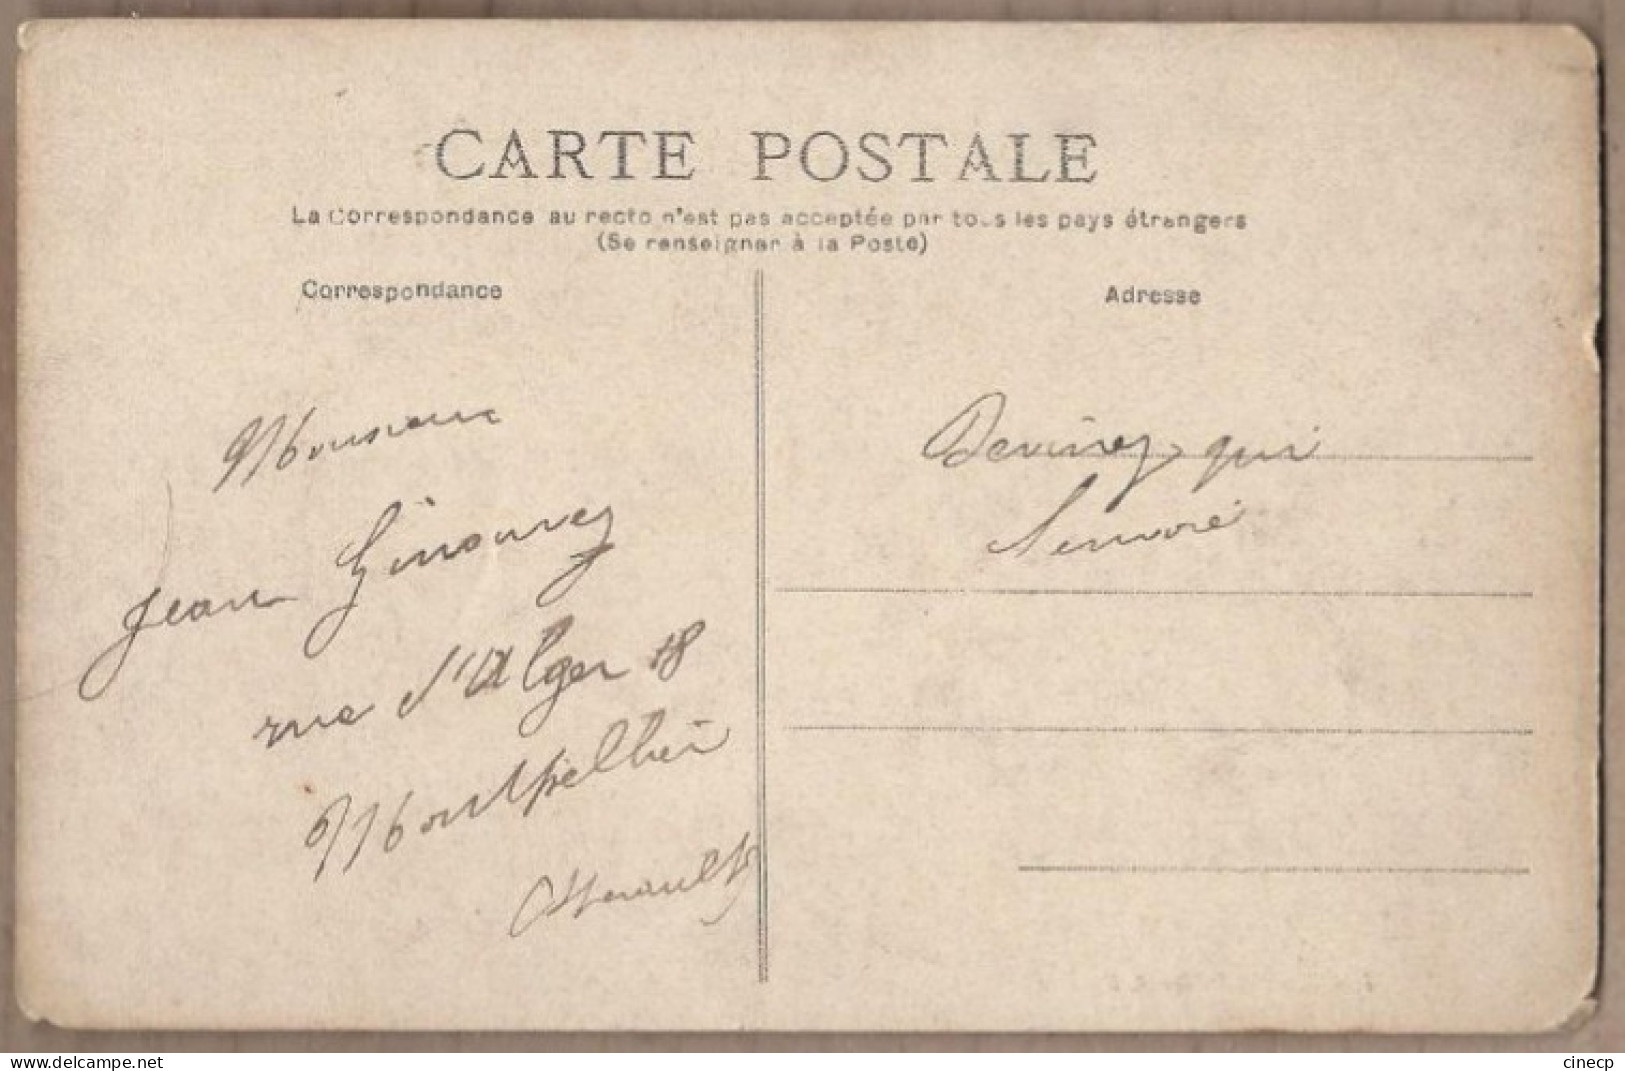 CARTE POSTALE
La Correspondance au recto n'est pas acceptée par tous les pays étrangers
(Se renseigner à la Poste)
Correspondance
Adresse
Monsieur
Jean Ginouvez
rue d'Alger 18
Montpellier
(Herault)
Devinez qui
cinecp